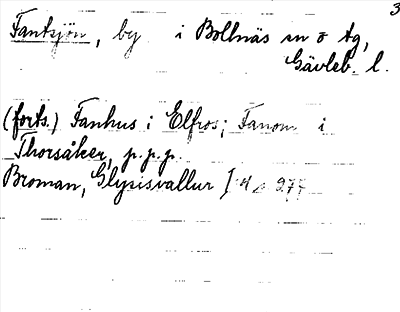 3
Fantsjön, by i Bollnäs sn o tg,
Gävleb. l.
(forts.) Fanhus i Elfros; Fanom i
Thorsåker, p.p.p.
Broman, Glysisvallur